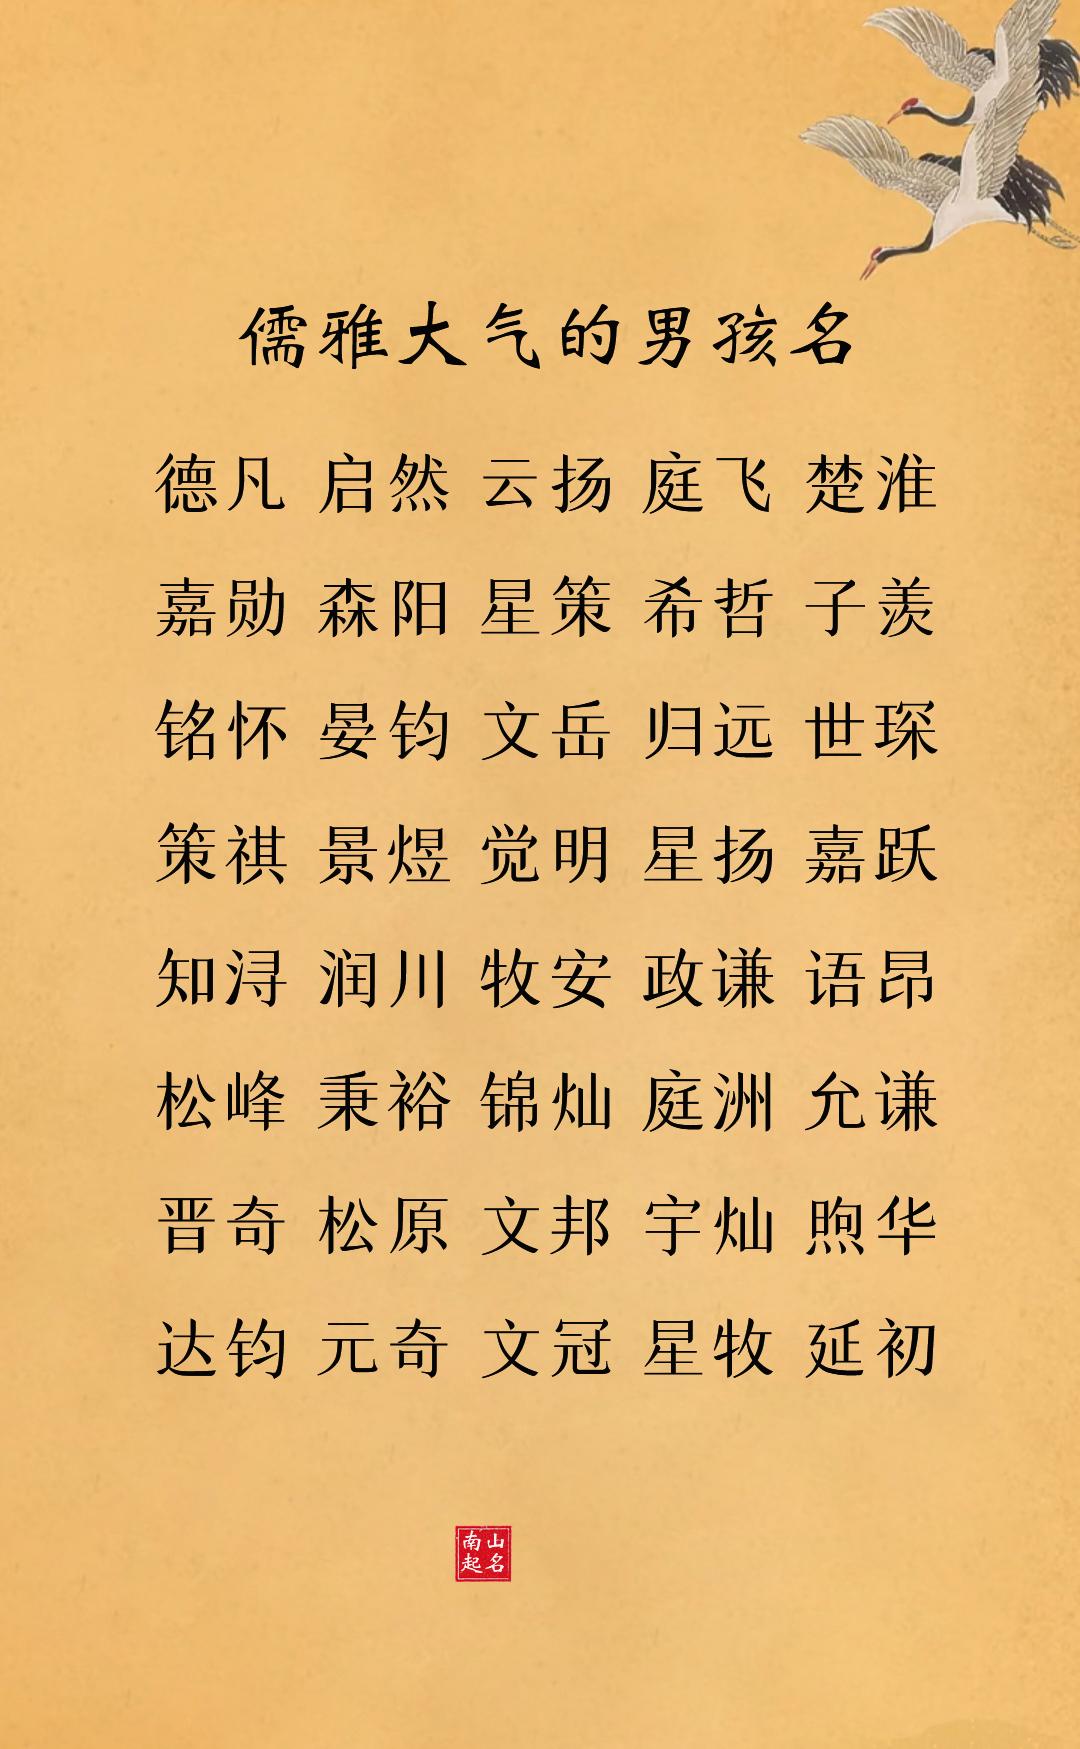 儒雅大气的男孩名
德凡 启然 云扬 庭飞 楚淮
嘉勋 森阳 星策 希哲 子羡
铭怀 晏钧 文岳 归远 世琛
策祺 景煜 觉明 星扬 嘉跃
知浔 润川 牧安 政谦 语昂
松峰 秉裕 锦灿 庭洲 允谦
晋奇 松原 文邦 宇灿 煦华
达钧 元奇 文冠 星牧 延初
南山
起名